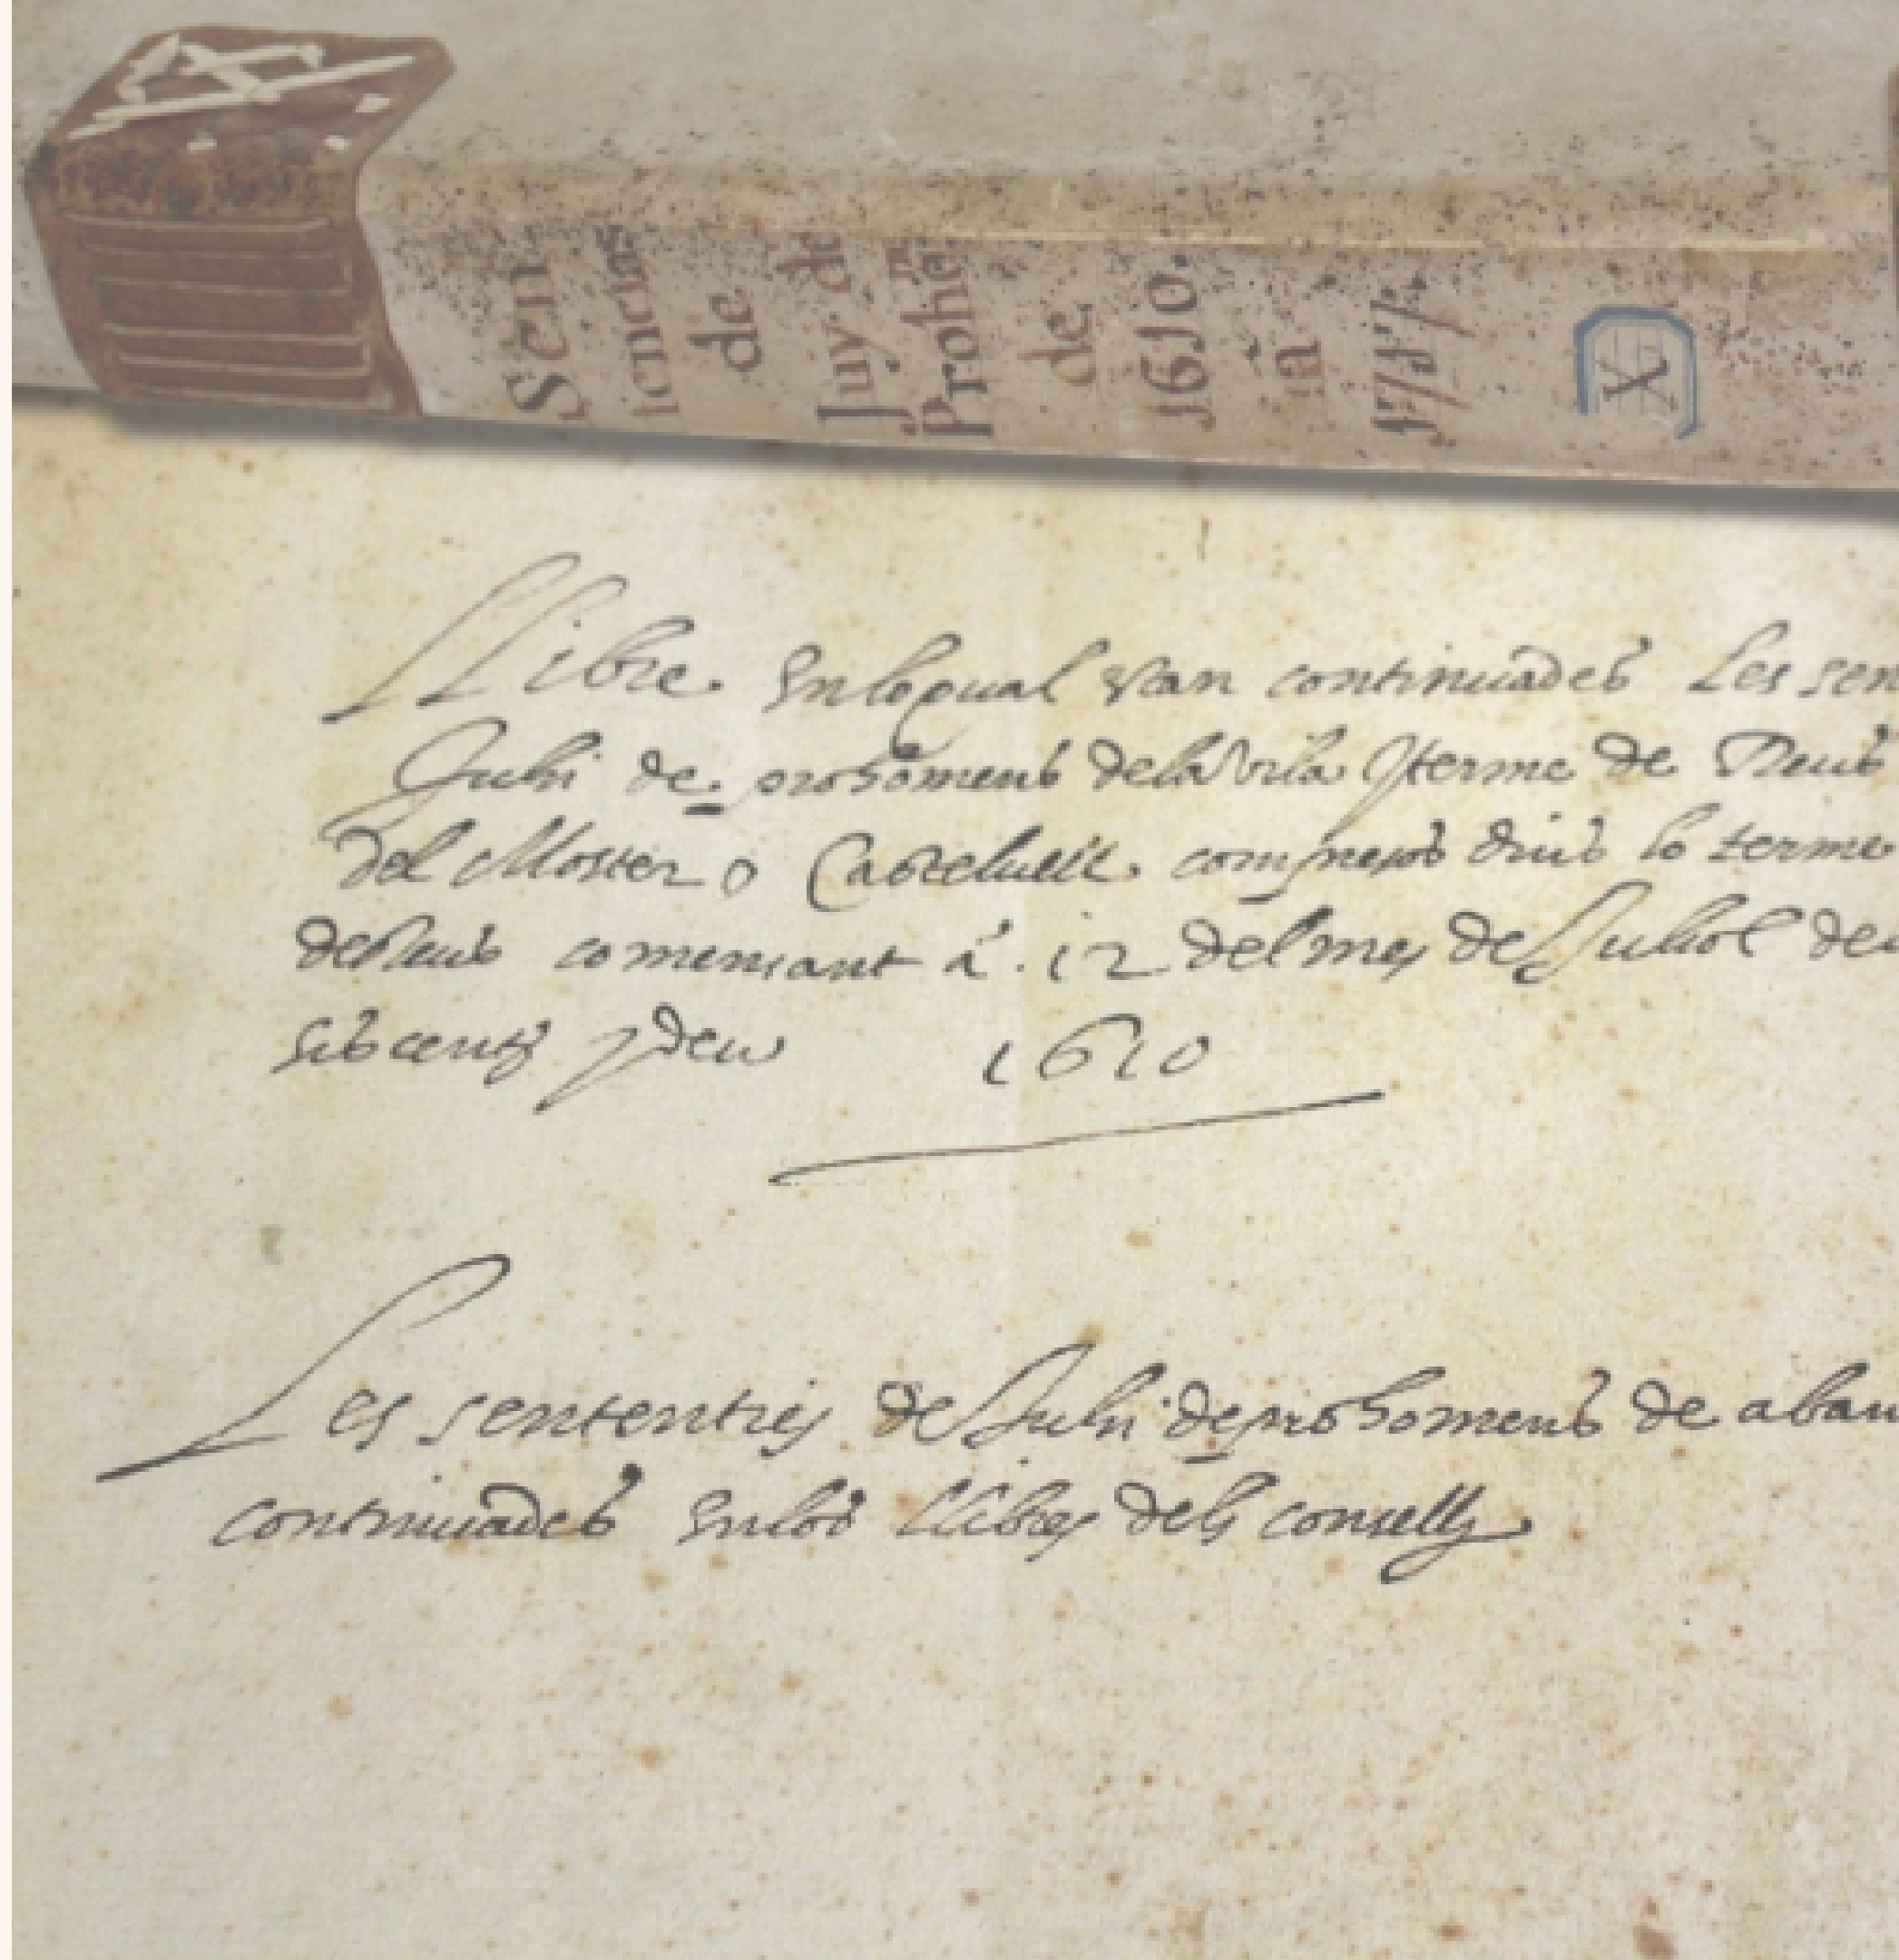 Sen
tencias
de
Juy de
Prohe
de
1610.
ia
X
LLibre. En loqual van continuades Les sen
Juhi de prohomens dela vila y terme de Reus
del Moster o Castelvell. compresos dins lo terme
de Reus comensant á .12 del mes de Juliol de
sis cents y deu 1610
Les sententies de Juhi de prohomens de aban
continuades en los llibres dels consells